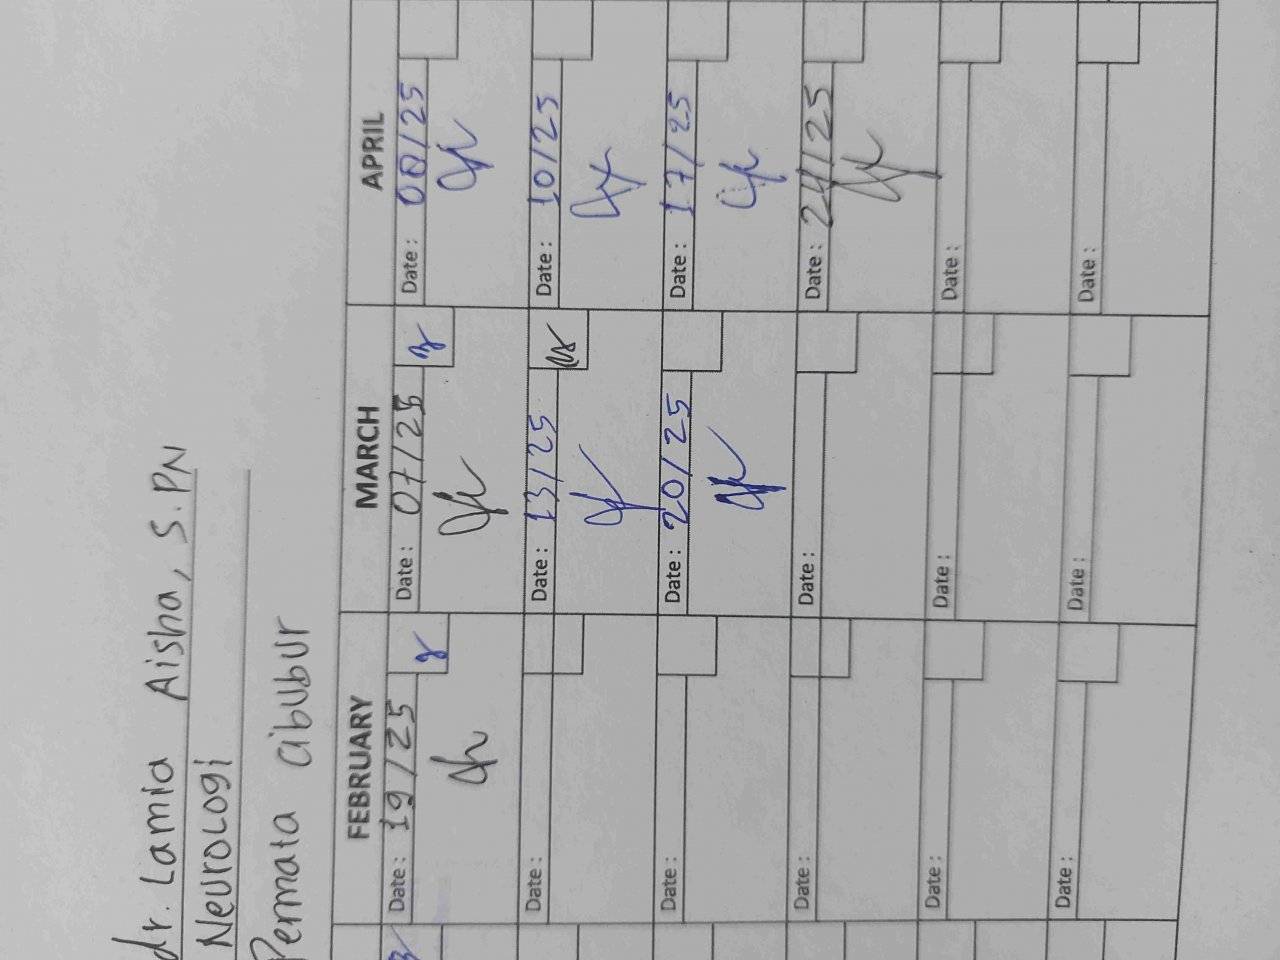 dr. Lamia Aisha, S.PN
Neurologi
Permata Cibubur
FEBRUARY MARCH APRIL
Date : 19/25 Date : 07/25 Date : 08/25
Date : Date : 13/25 Date : 10/25
Date : Date : 20/25 Date : 17/25
Date : Date : Date : 24/25
Date : Date : Date :
Date : Date : Date :